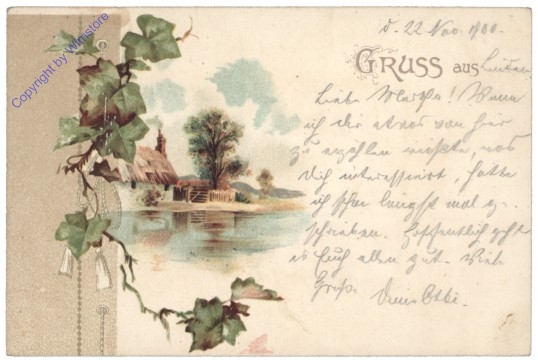 Copyright by Winstore
d. 22 Nov. 1900.
GRUSS aus
Liebe Martha! Wenn
ich dir etwas von hier
zu erzählen wüßte, was
Dich interessiert, hätte
ich schon längst mal ge-
schrieben. Hoffentlich geht
es Euch allen gut. Viele
Grüße